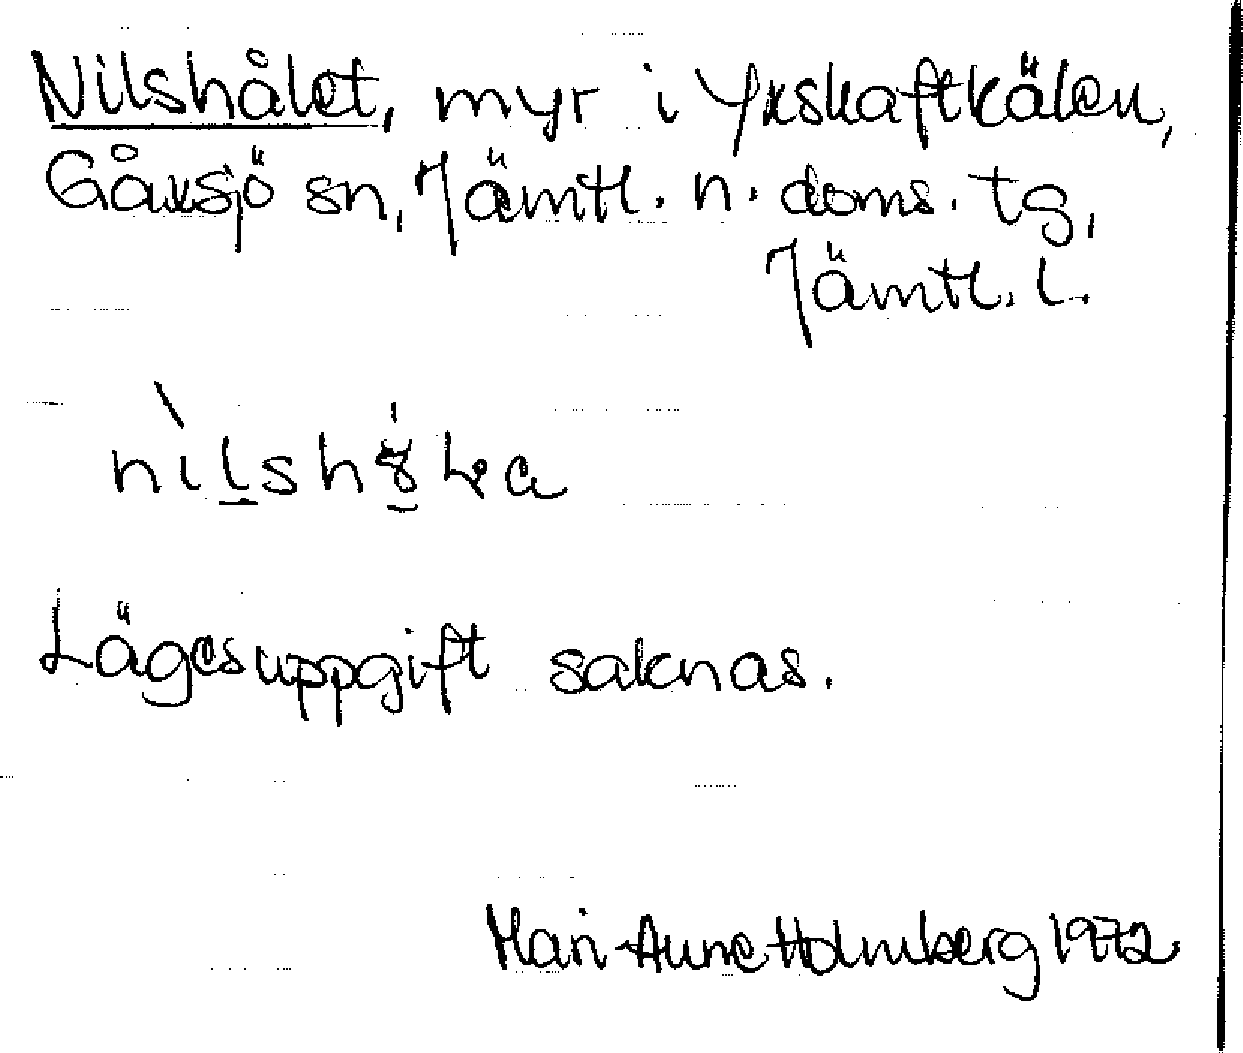 Nilshålet, myr i Yxskaftkälen,
Gåxsjö sn, Jämtl. n. doms. tg,
Jämtl. l.
Lägesuppgift saknas.
Mari-Anne Holmberg 1972